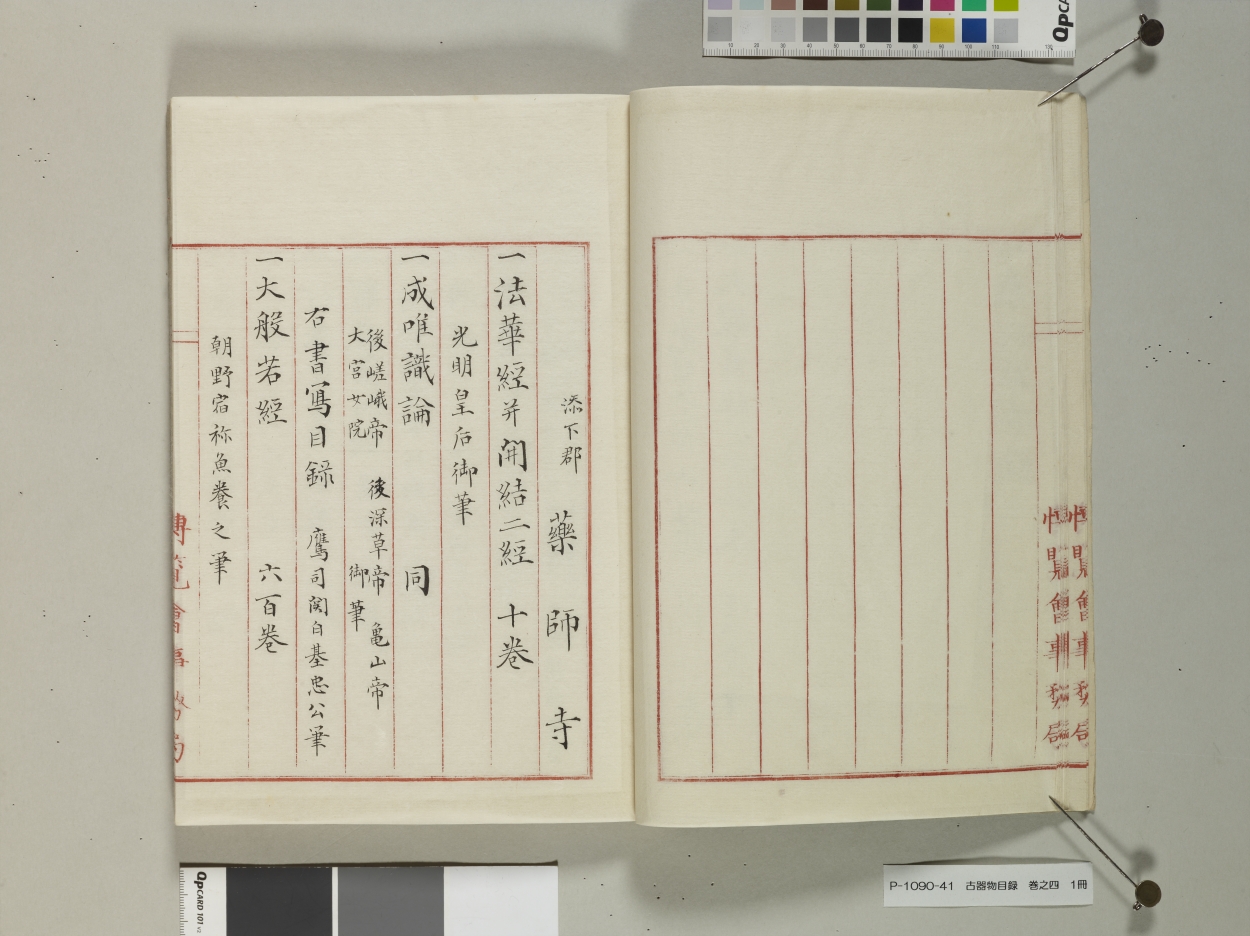 添下郡 藥師寺
一法華經并開結二經 十卷
光明皇后御筆
一成唯識論 同
後嵯峨帝 後深草帝 亀山帝
大宮女院 御筆
右書寫目録 鷹司関白基忠公筆
一大般若經 六百卷
朝野宿祢魚養之筆
博覧會事務局
P-1090-41 古器物目録 巻之四 1冊
QPCARD 101 v2